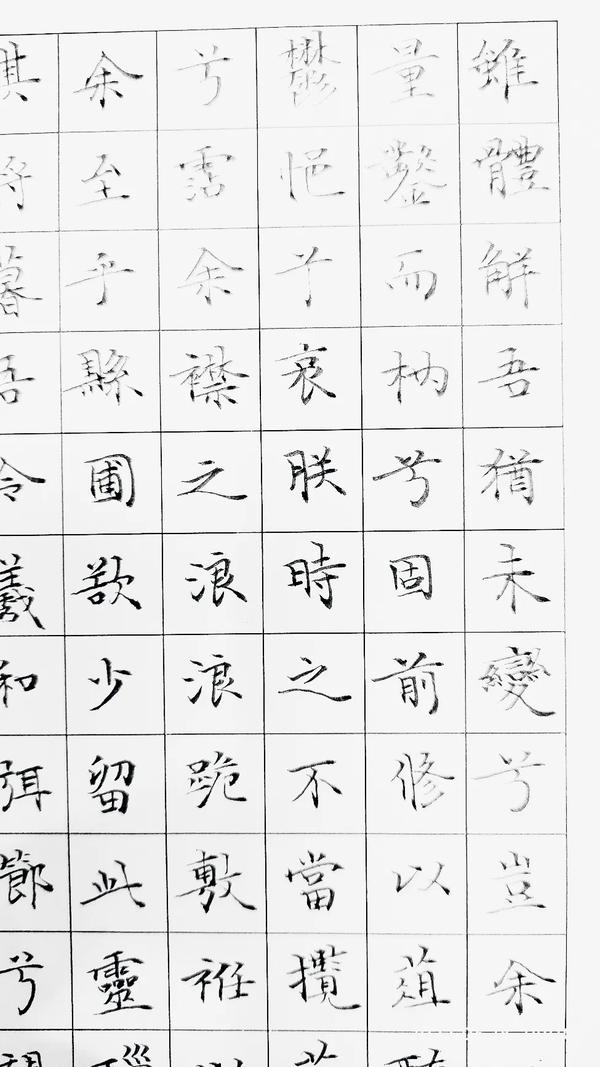 雖體解吾猶未變兮豈余
量鑿而枘兮固前修以菹
鬱悒兮哀朕時之不當攬
兮霑余襟之浪浪跪敷衽
余至乎縣圃欲少留此靈
其將暮吾令羲和弭節兮